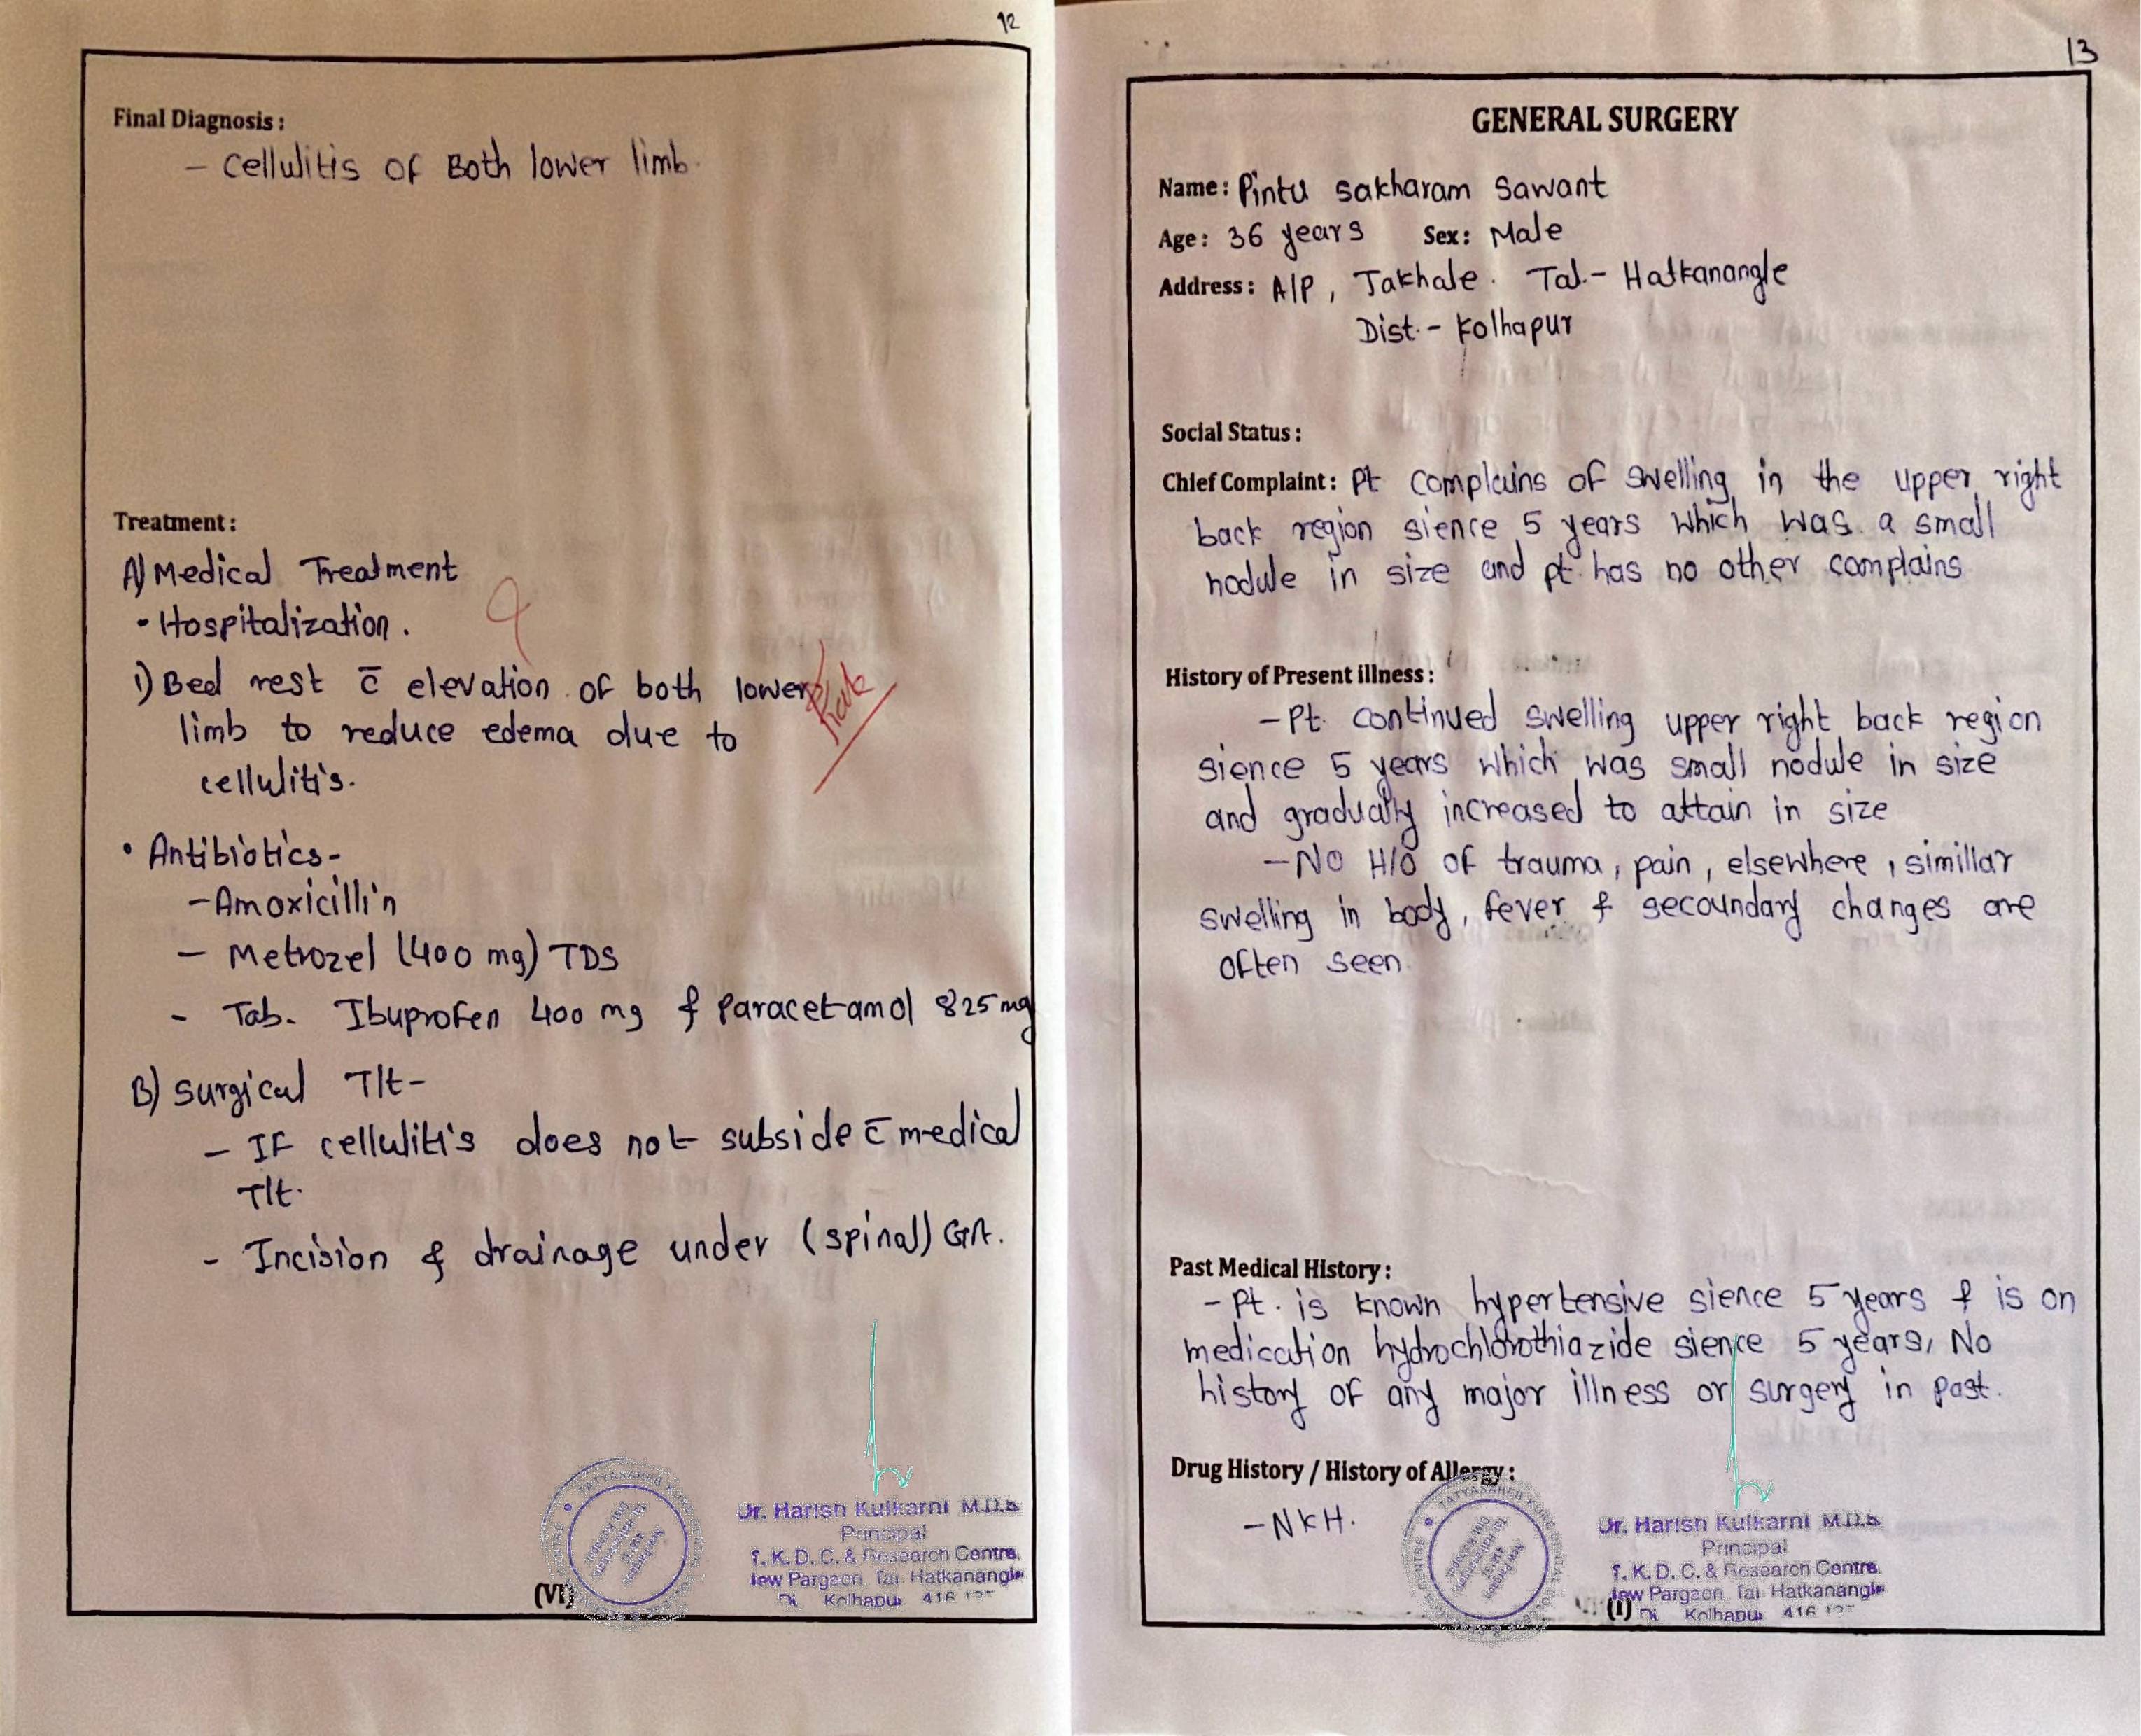 12
Final Diagnosis :
- Cellulitis of Both lower limb.
Treatment :
A) Medical Treatment
• Hospitalization.
i) Bed rest c̄ elevation of both lower
limb to reduce edema due to
cellulitis.
• Antibiotics-
- Amoxicillin
- Metrozel (400 mg) TDS
- Tab. Ibuprofen 400 mg & paracetamol 825 mg
B) Surgical Tlt-
- If cellulitis does not subside c̄ medical
Tlt.
- Incision & drainage under (spinal) GA.
Dr. Harish Kulkarni M.D.S
Principal
T. K. D. C. & Research Centre,
New Pargaon Tal. Hatkanangle
Di Kolhapur 416
(VI)
13
GENERAL SURGERY
Name : Pintu Sakharam Sawant
Age : 36 years Sex : Male
Address : A/P, Takhale. Tal.- Hatkanangle
Dist.- Kolhapur
Social Status :
Chief Complaint : Pt complains of swelling in the upper right
back region sience 5 years which was a small
nodule in size and pt. has no other complains
History of Present illness :
- Pt. continued swelling upper right back region
sience 5 years which was small nodule in size
and gradually increased to attain in size
- No H/O of trauma, pain, elsewhere, simillar
swelling in body, fever & secoundary changes are
often seen.
Past Medical History :
- Pt. is known hypertensive sience 5 years & is on
medication hydrochlorothiazide sience 5 years, No
history of any major illness or surgery in past.
Drug History / History of Allergy :
- NKH.
Dr. Harish Kulkarni M.D.S
Principal
T. K. D. C. & Research Centre,
New Pargaon Tal. Hatkanangle
(I) Di Kolhapur 416